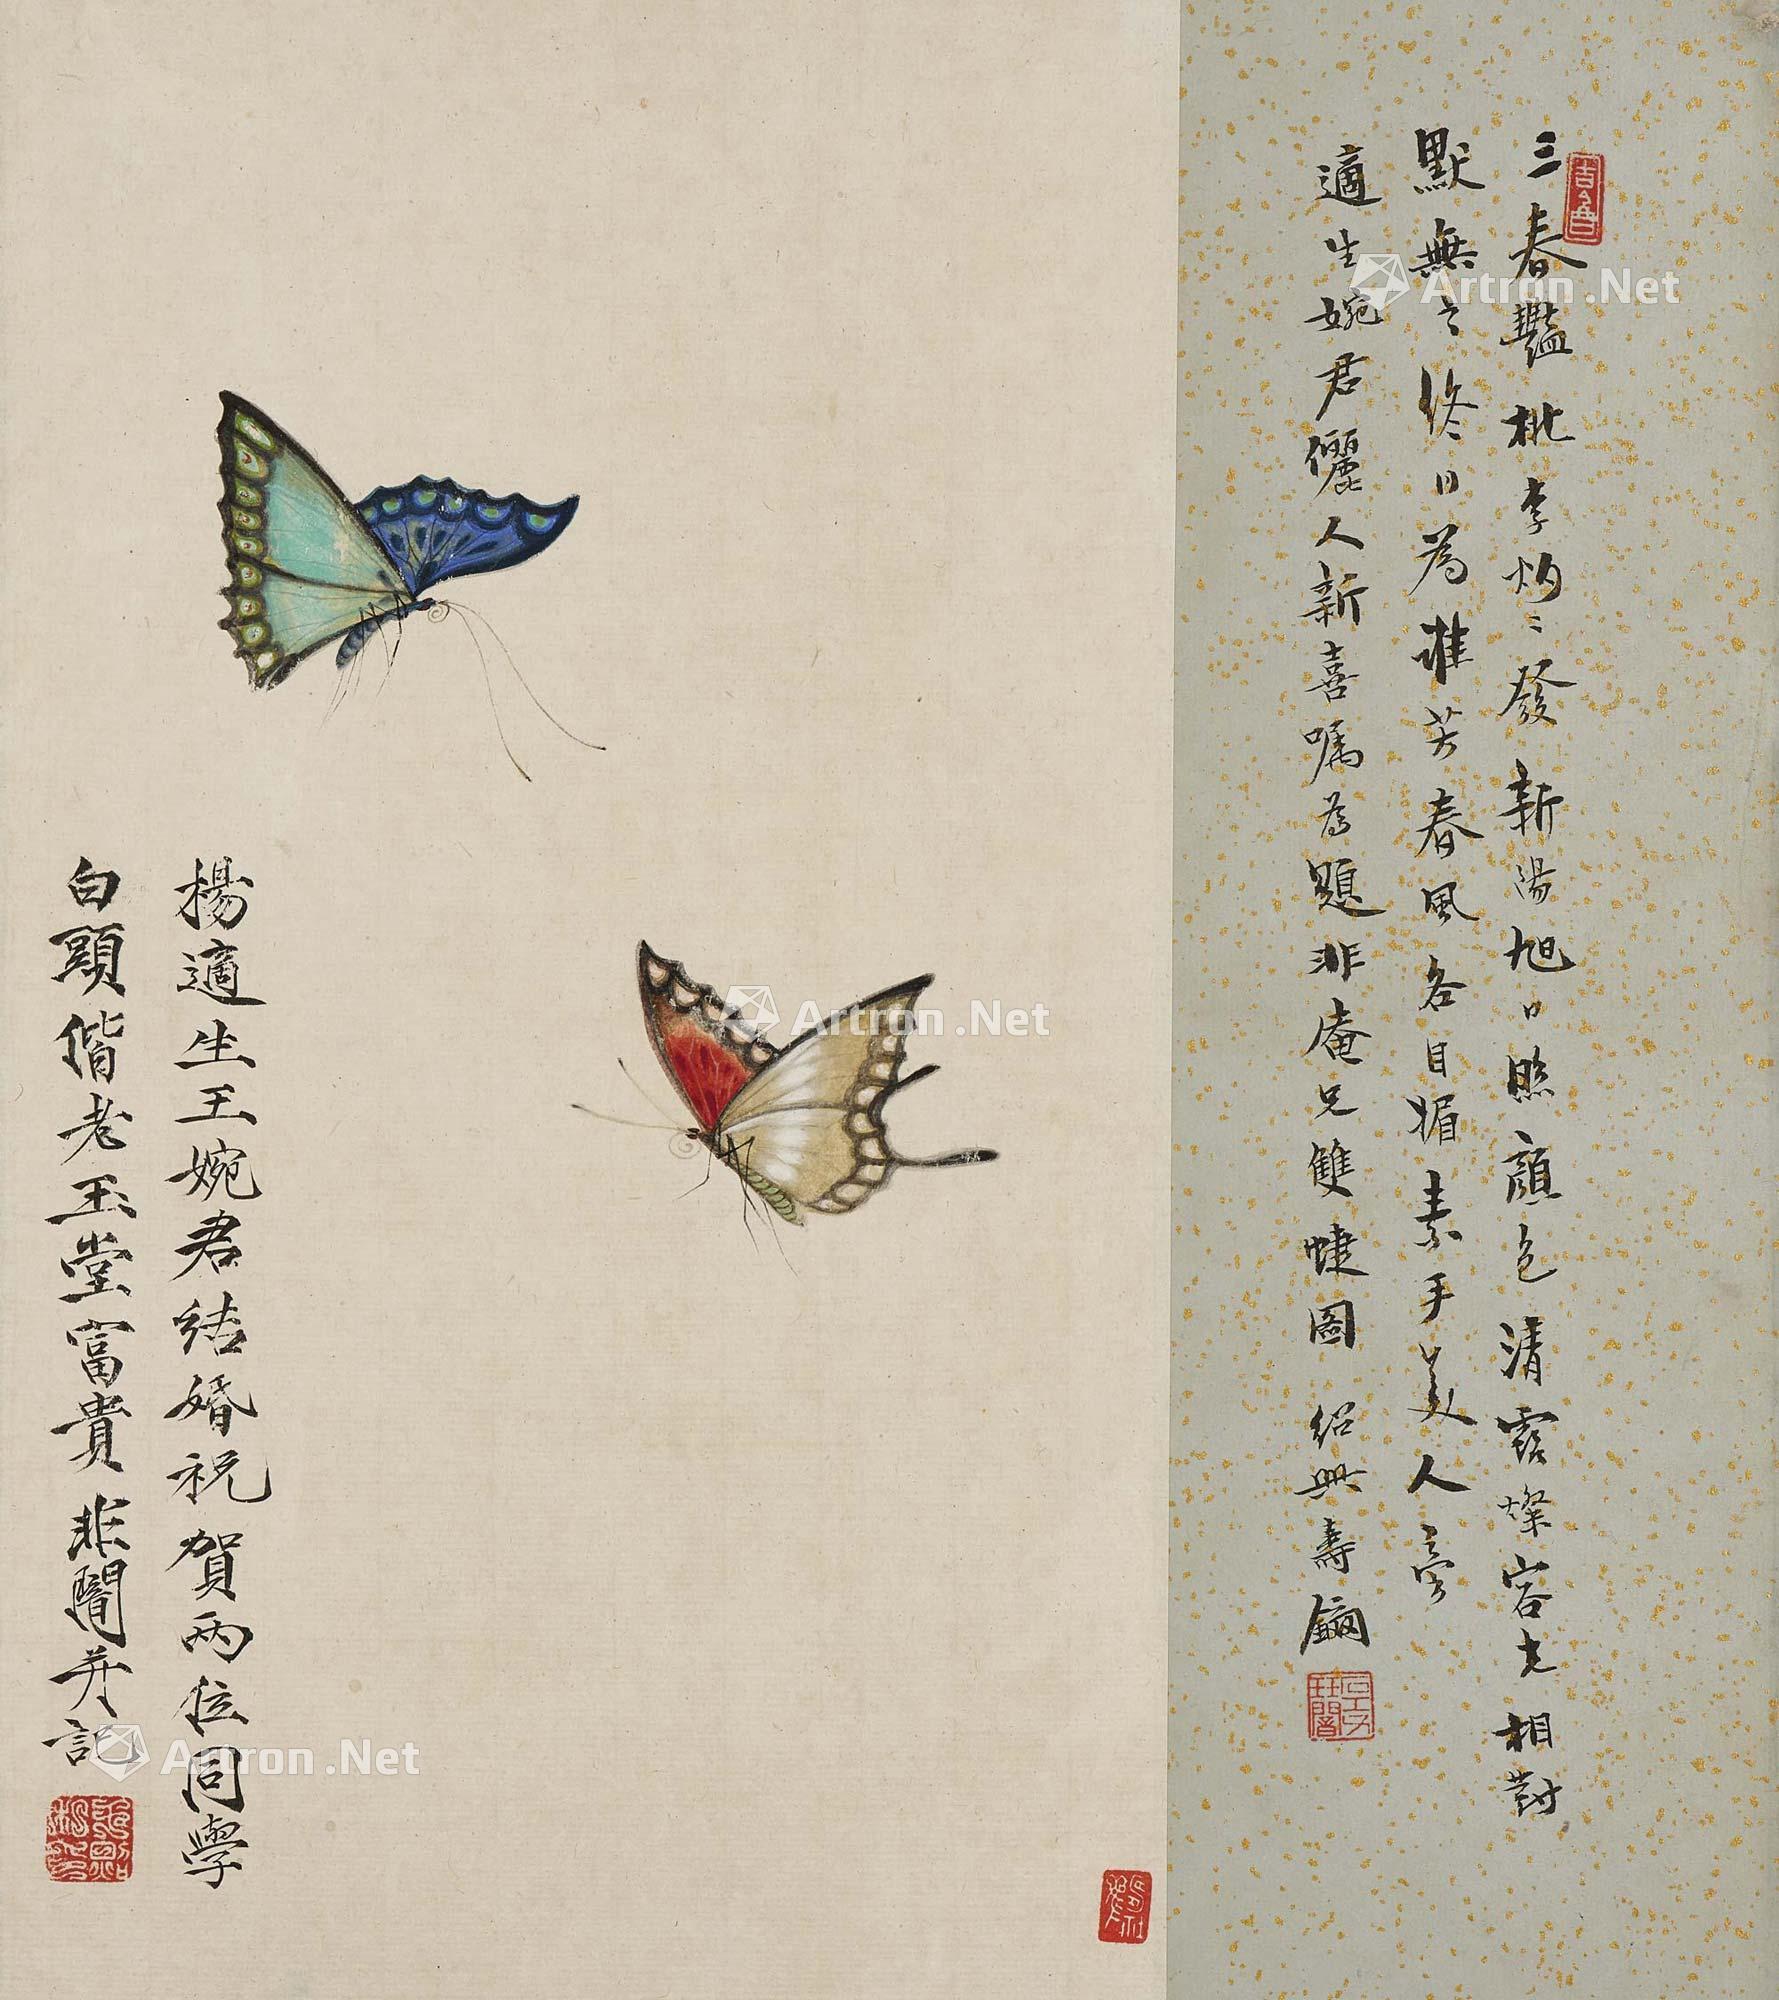 三春艷桃李灼灼發新陽旭日照顏色清露燦容光相對
默無言終日為誰芳春風各自媚素手美人旁
適生婉君儷人新喜囑為題非庵兄雙蜨圖 紹興壽鑈
楊適生王婉君結婚祝賀兩位同學
白頭偕老玉堂富貴 非闇并記
Artron.Net
Artron.Net
Artron.Net